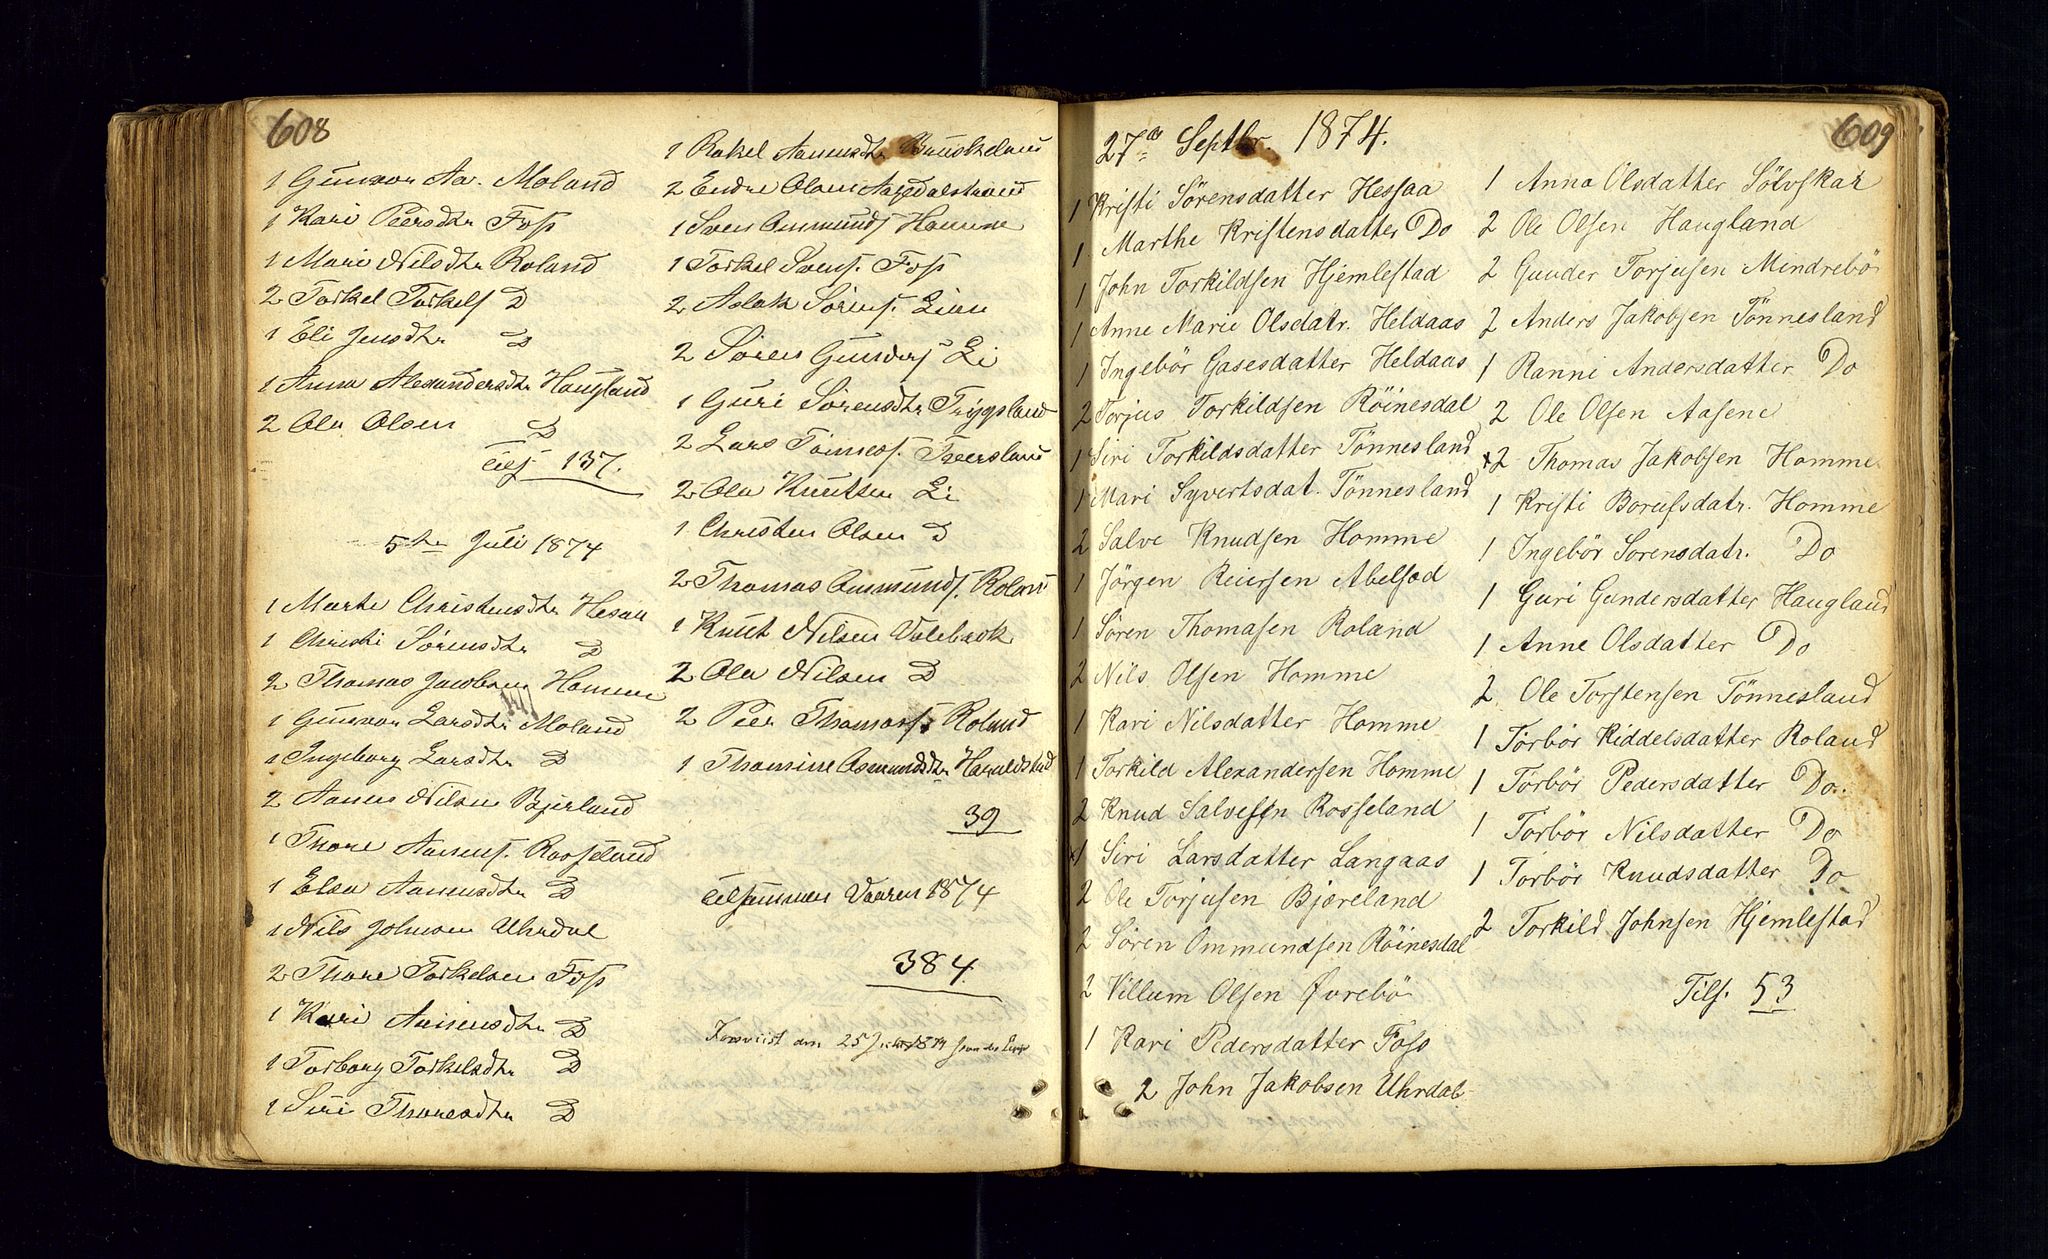 608
1 Gunvor Aa. Moland
1 Kari Peersdtr Foss
1 Mari Nilsdtr Roland
2 Torkel Torkels D
1 Eli Jensdtr D
1 Anna Alexandersdtr Haugland
2 Ola Olsen D
Tils 137.
5te Juli 1874
1 Marte Christensdtr Hesaa
1 Christi Sörensdtr D
2 Thomas Jacobsen Homme
1 Gunvor Larsdtr Moland
1 Ingeborg Larsdtr D
2 Aanen Nilsen Bjerland
1 Thore Aanens. Rosseland
1 Elen Aanensdtr D
1 Nils Johnsen Uhrdal
2 Thore Torkelsen Foss
1 Kari Aanensdtr D
1 Torborg Torkelsdtr D
1 Siri Thoresdtr D
1 Rakel Aanensdtr
2 Endre Olsen
1 Sven Ommunds Homme
1 Torkel Svens. Foss
2 Aslak Sörens. Lian
2 Sören Gunders Li
1 Guri Sörensdtr Trygsland
2 Lars Tönness.
2 Ola Knutsen Li
1 Christen Olsen D
2 Thomas Ommunds. Roland
1 Knut Nilsen Valebrok
2 Ola Nilsen D
2 Peer Thomass. Roland
1 Thomine Osmundsdtr Haraldstad
39
Tilsammen Vaaren 1874
384.
den 25 1874
27de Septbr. 1874.
609
1 Kristi Sörensdatter Hessaa
1 Marthe Kristensdatter Do
1 John Torkildsen Hjemlestad
1 Anne Marie Olsdatr. Heldaas
1 Ingebör Gasesdatter Heldaas
2 Torjus Torkildsen Röinesdal
1 Siri Torkildsdatter Tönnesland
1 Mari Syvertsdat. Tönnesland
2 Salve Knudsen Homme
1 Jörgen Reiersen Abelsod
1 Sören Thomasen Roland
2 Nils Olsen Homme
1 Kari Nilsdatter Homme
1 Torkild Alexandersen Homme
2 Knud Salvesen Rosseland
x1 Siri Larsdatter Langaas
2 Ole Torjusen Bjæreland
2 Sören Ommundsen Röinesdal
2 Villum Olsen Øvrebö
1 Kari Pedersdatter Foss
2 John Jakobsen Uhrdal
1 Anna Olsdatter Sölvskar
2 Ole Olsen Haugland
2 Gunder Torjusen Mindrebö
2 Anders Jakobsen Tönnesland
1 Ranni Andersdatter Do
2 Ole Olsen Aasene
x2 Thomas Jakobsen Homme
1 Kristi Borufsdatr. Homme
1 Ingebör Sorensdatr. Do
1 Guri Gundersdatter Haugland
1 Anne Olsdatter Do
2 Ole Torstensen Tönnesland
1 Törbör Reddelsdatter Roland
1 Törbör Pedersdatter Do.
1 Törbör Nilsdatter Do
1 Törbör Knudsdatter Do
2 Torkild Johnsen Hjemlestad
Tils. 53